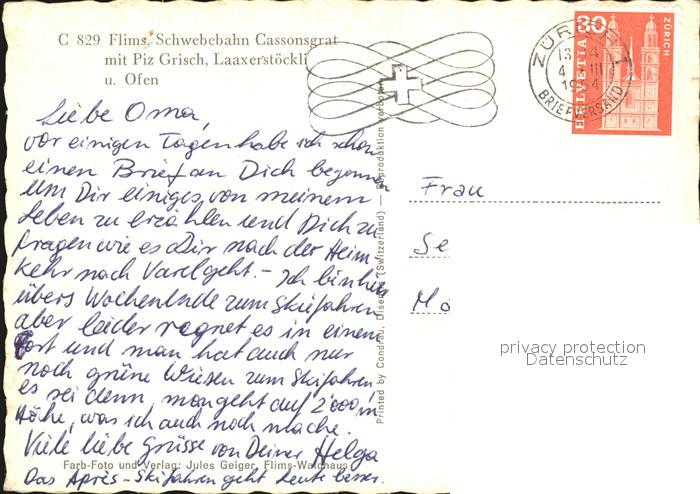 C 829 Flims, Schwebebahn Cassonsgrat
mit Piz Grisch, Laaxerstöckli
u. Ofen
Liebe Oma,
vor einigen Tagen habe ich schon
einen Brief an Dich begonnen
um Dir einiges von meinem
Leben zu erzählen und Dich zu
fragen wie es Dir nach der Heim-
kehr nach Varel geht. - Ich bin hier
übers Wochenende zum Skifahren
aber leider regnet es in einem
fort und man hat auch nur
noch grüne Wiesen zum Skifahren
es sei denn, man geht auf 2'000 m
Höhe, was ich auch noch mache.
Viele liebe Grüsse von Deiner Helga
Das Après-Skifahren geht heute besser.
Farb-Foto und Verlag: Jules Geiger, Flims-Waldhaus
Printed by Condrau, Disentis (Switzerland) — Reproduktion verboten
ZÜRICH
13
4 III
BRIEFVERSAND
30
HELVETIA
ZÜRICH
Frau
Se
Mo
privacy protection
Datenschutz